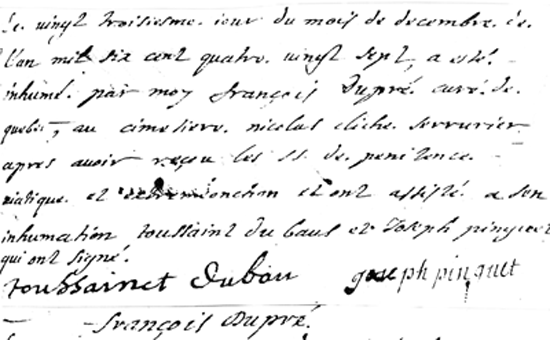 Le vingt troisiesme. iour du mois de decembre. de.
l'an mil six cent quatre. vingt sept, a esté.
inhumé. par moy françois Dupré. curé. de.
quebec, au cimetiere. nicolas cliche. serrurier
apres avoir reçu les SS. de. penitence.
viatique. et extremonction et ont assisté a son
inhumation toussaint du baus et Joseph pinguet
qui ont signé.
toussainct dubau joseph pinguet
françois Dupré.